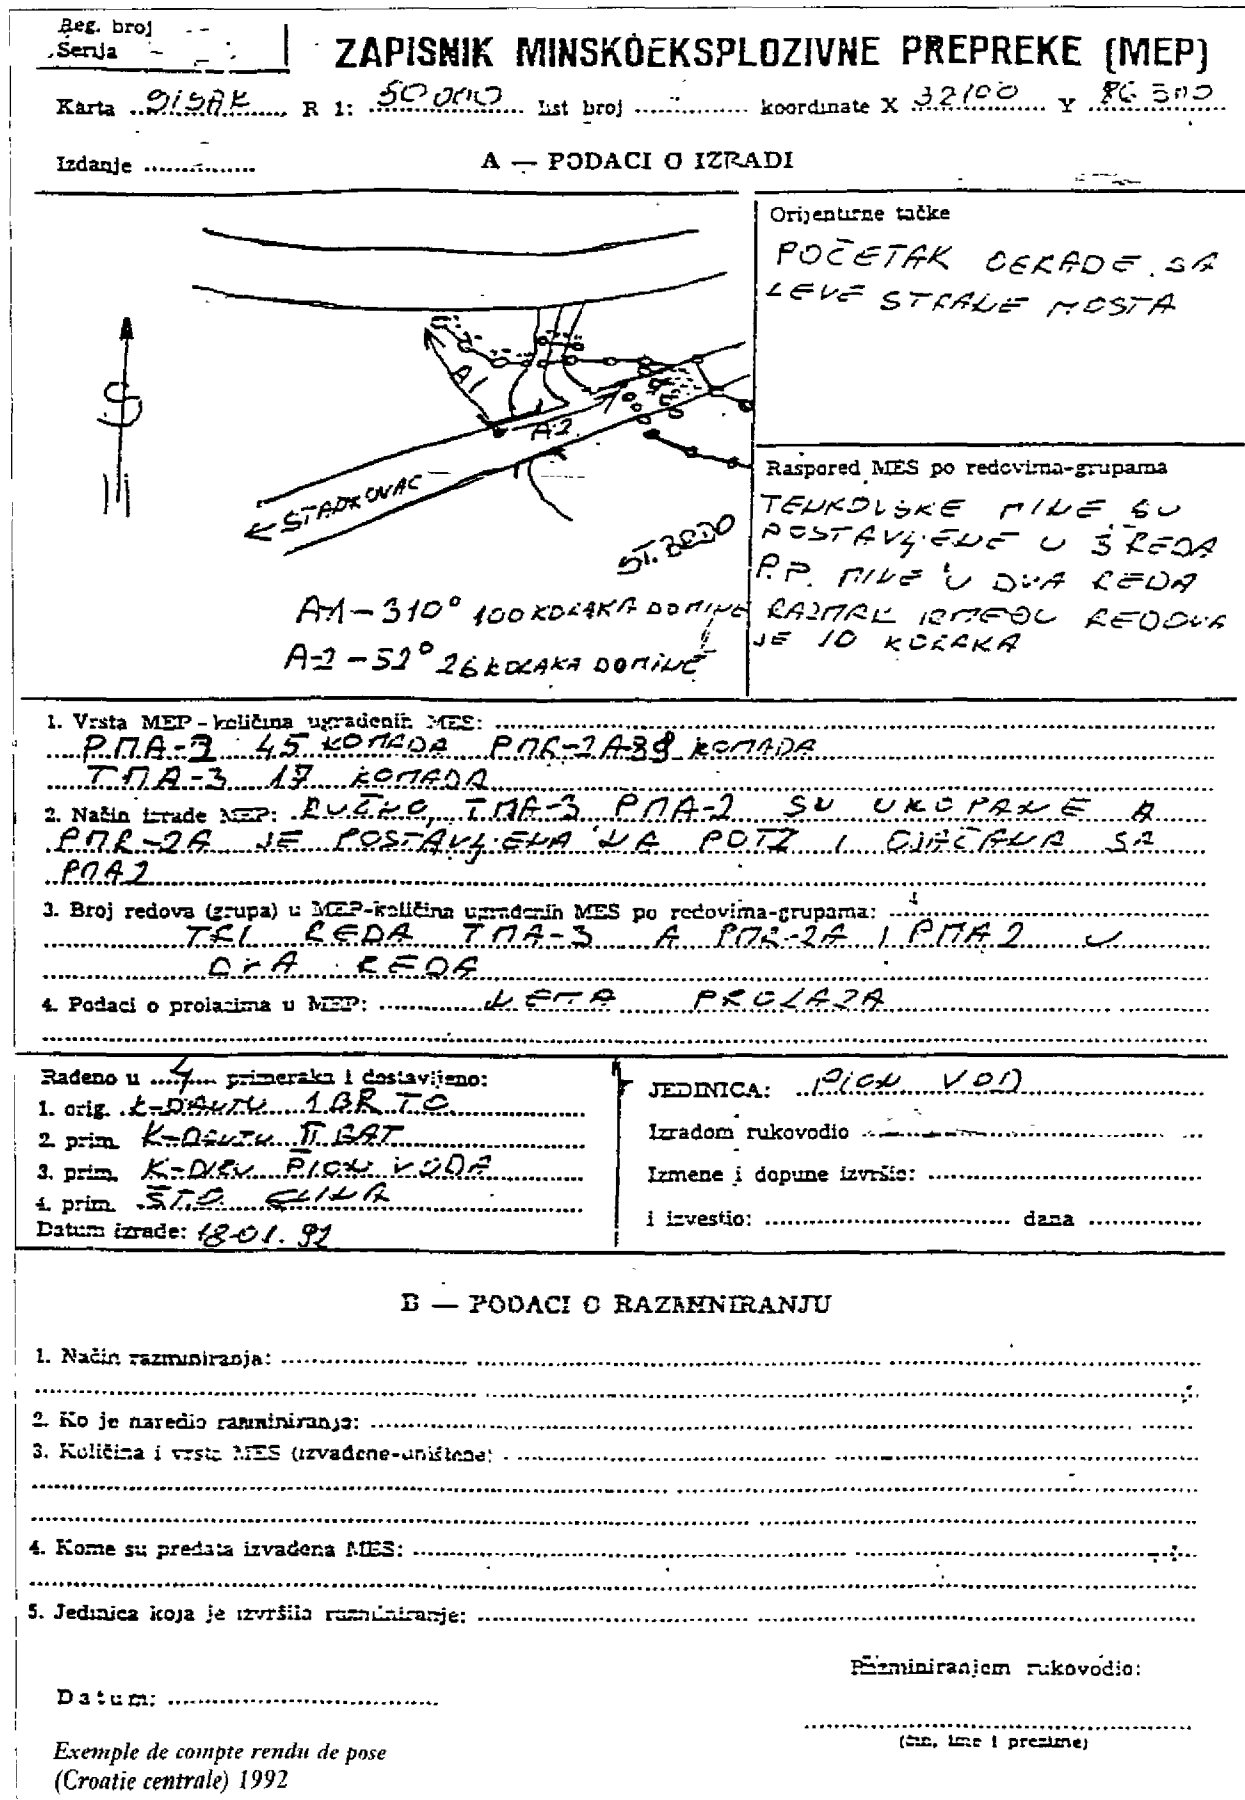 Reg. broj - -
Serija -
ZAPISNIK MINSKOEKSPLOZIVNE PREPREKE (MEP)
Karta SISAK R 1: 50 000 list broj koordinate X 32100 Y 86 300
Izdanje
A — PODACI O IZRADI
Orijentirne tačke
POČETAK OGRADE SA
LEVE STRANE MOSTA
S
A1
A2
STANKOVAC
ST. BRDO
A-1 – 310° 100 KORAKA DO MINE
A-2 – 52° 26 KORAKA DO MINE
Raspored MES po redovima-grupama
TENKOVSKE MINE SU
POSTAVLJENE U 3 REDA
P.P. MINE U DVA REDA
RAZMAK IZMEĐU REDOVA
JE 10 KORAKA
1. Vrsta MEP - količina ugrađenih MES:
PMA-2 45 KOMADA PMR-2A-39 KOMADA
TMA-3 17 KOMADA
2. Način izrade MEP: RUČNO, TMA-3 PMA-2 SU UKOPANE A
PMR-2A JE POSTAVLJENA NA POTEZ I OJAČANA SA
PMA2
3. Broj redova (grupa) u MEP-količina ugrađenih MES po redovima-grupama:
TRI REDA TMA-3 A PMR-2A I PMA2 U
DVA REDA
4. Podaci o prolazima u MEP: NEMA PROLAZA
Rađeno u 4 primeraka i dostavljeno:
1. orig. K-DANTU 1 BR TO
2. prim. K-DANTU II BAT
3. prim. K-DIRU PION VODA
4. prim. ŠTO GLINA
Datum izrade: 18.01.92
JEDINICA: PION VOD
Izradom rukovodio
Izmene i dopune izvršio:
i izvestio: dana
B — PODACI O RAZMINIRANJU
1. Način razminiranja:
2. Ko je naredio razminiranje:
3. Količina i vrsta MES (izvađene-uništene:
4. Kome su predata izvađena MES:
5. Jedinica koja je izvršila razminiranje:
Razminiranjem rukovodio:
Datum:
(čin, ime i prezime)
Exemple de compte rendu de pose
(Croatie centrale) 1992